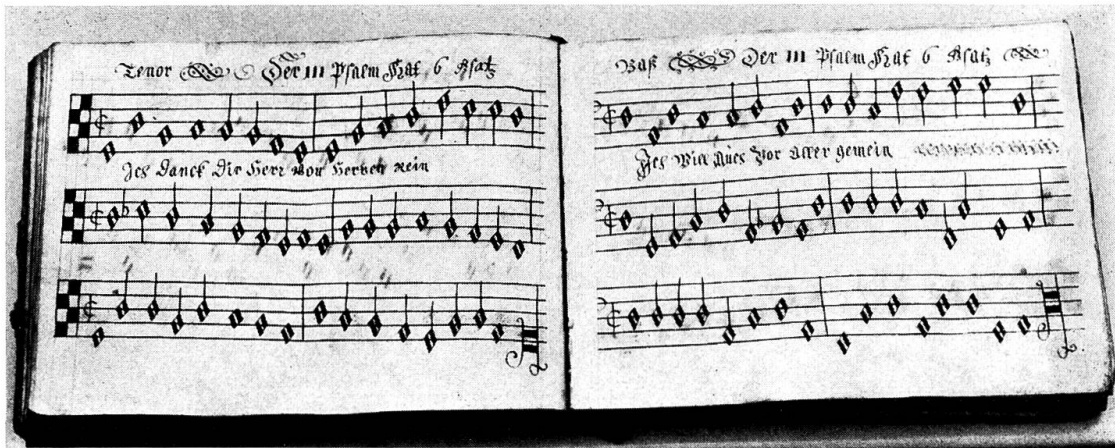 Tenor Der 111 Psalm Hat 6 Gsatz
Ich Danck Dir Herr Von Hertzen Rein
Baß Der 111 Psalm Hat 6 Gsatz
Ich Will Auch Vor Aller gemein